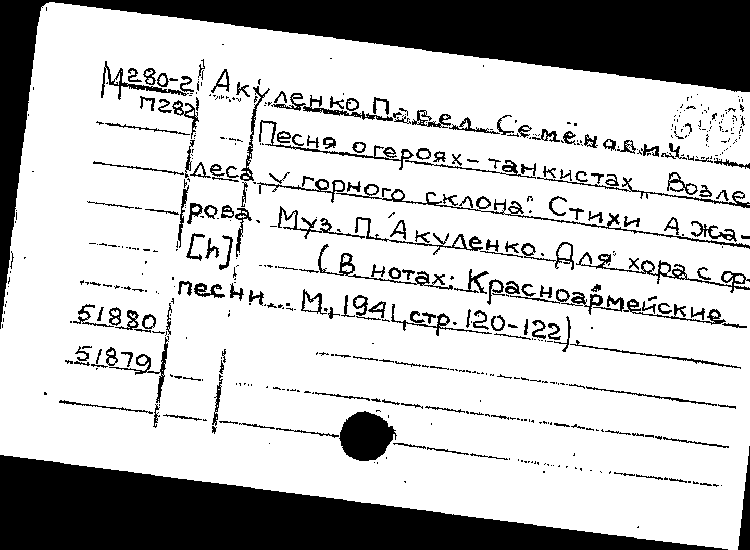 М280-2
П282
Акуленко, Павел Семёнавич
649
Песня о героях-танкистах „Возле
леса, у горного склона". Стихи А. Жа-
рова. Муз. П. Акуленко. Для хора с ф-
[h] (В нотах: Красноармейские
песни... М., 1941, стр. 120-122).
51880
51879